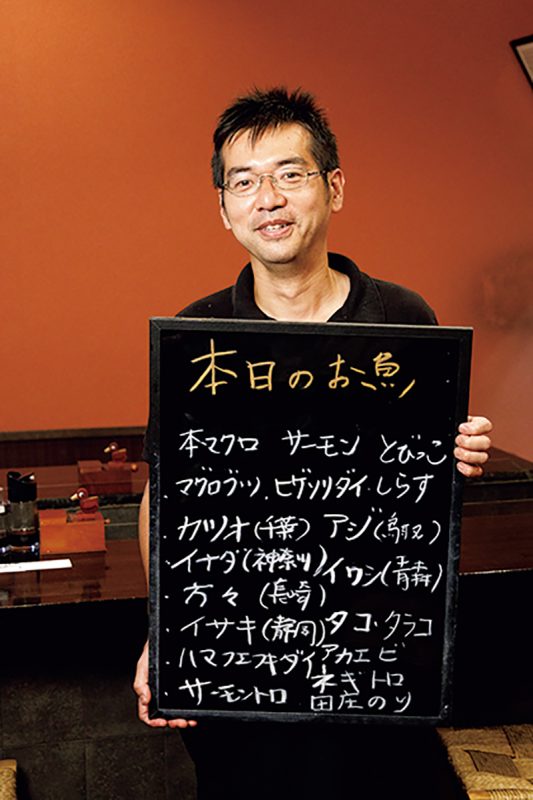 本日のお魚
本マグロ サーモン とびっこ
・マグロブツ、ヒゲソリダイ・しらす
・カツオ(千葉) アジ(鳥取)
・イナダ(神奈川) イワシ(青森)
・方々(長崎)
・イサキ(静岡) タコ・タラコ
・ハマフエフキダイ アカエビ
・サーモントロ ネギトロ
田庄のり